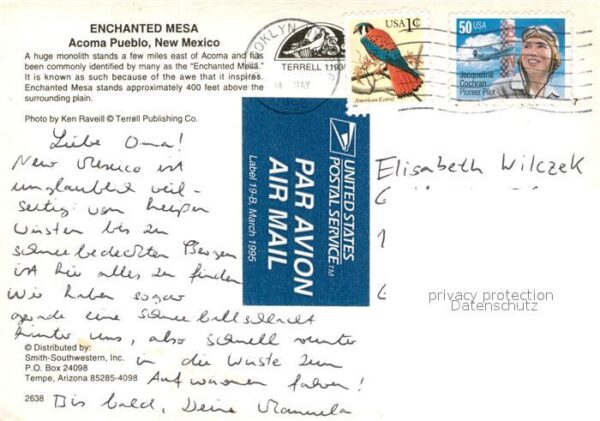 ENCHANTED MESA
Acoma Pueblo, New Mexico
A huge monolith stands a few miles east of Acoma and has
been commonly identified by many as the "Enchanted Mesa."
It is known as such because of the awe that it inspires.
Enchanted Mesa stands approximately 400 feet above the
surrounding plain.
Photo by Ken Raveill © Terrell Publishing Co.
Liebe Oma!
New Mexico ist
unglaubl viel-
seitig von heißen
Wüsten bis zu
schneebedeckten Bergen
ist hier alles zu finden
Wir haben sogar
gerade eine Schneeballschlacht
hinter uns, also schnell runter
in die Wüste zum
Aufwärmen fahren!
Bis bald, Deine Manuela
© Distributed by:
Smith-Southwestern, Inc.
P.O. Box 24098
Tempe, Arizona 85285-4098
2638
TERRELL
MAY
USA 1¢
American Kestrel
50 USA
Jacqueline
Cochran
Pioneer Pilot
7
UNITED STATES
POSTAL SERVICE™
PAR AVION
AIR MAIL
Label 19-B, March 1995
Elisabeth Wilczek
privacy protection
Datenschutz